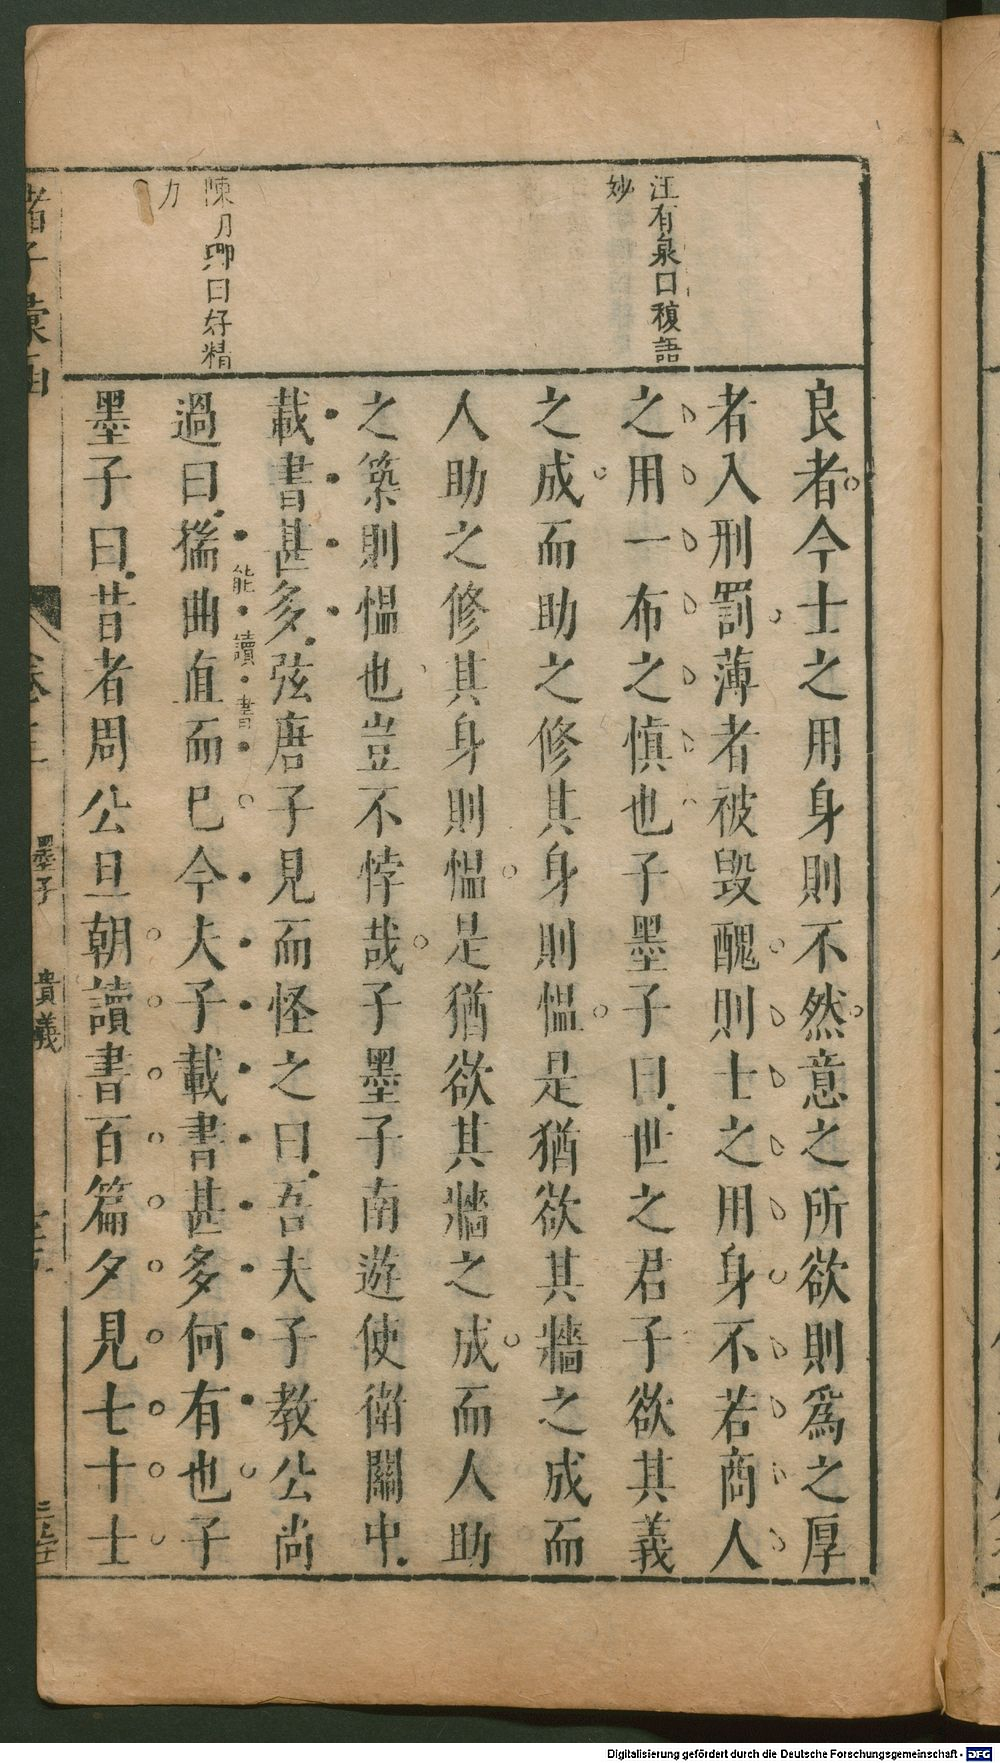 汪有泉曰複語
妙
陳月卿曰好精
力
良者今士之用身則不然意之所欲則爲之厚
者入刑罰薄者被毀醜則士之用身不若商人
之用一布之愼也子墨子曰世之君子欲其義
之成而助之修其身則慍是猶欲其牆之成而
人助之修其身則慍是猶欲其牆之成而人助
之築則慍也豈不悖哉子墨子南遊使衛關中
載書甚多弦唐子見而怪之曰吾夫子教公尚
能讀書
過曰揣曲直而已今夫子載書甚多何有也子
墨子曰昔者周公旦朝讀書百篇夕見七十士
諸子彙函
墨子
貴義
Digitalisierung gefördert durch die Deutsche Forschungsgemeinschaft - DFG